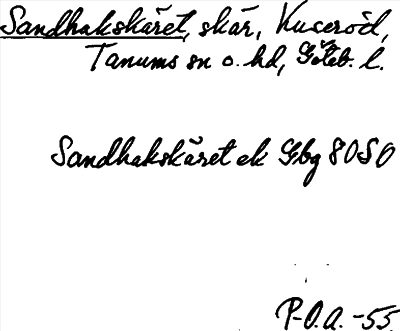 Sandhakskäret, skär, Kuseröd,
Tanums sn o. hd, Göteb. l.
Sandhakskäret ek Gbg 80 SO
P-O.A. -55